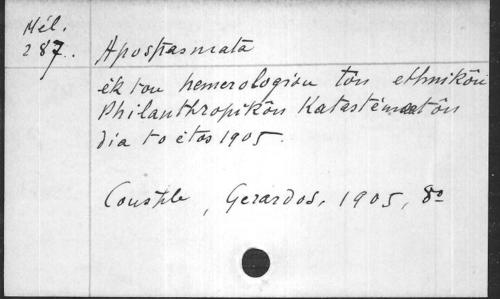 Mél.
287.
Apospasmata
ék tou hemerologiou tôn ethnikôn
Philanthropikôn Katastématôn
dia to étos 1905.
Constple, Gerardos, 1905, 8o